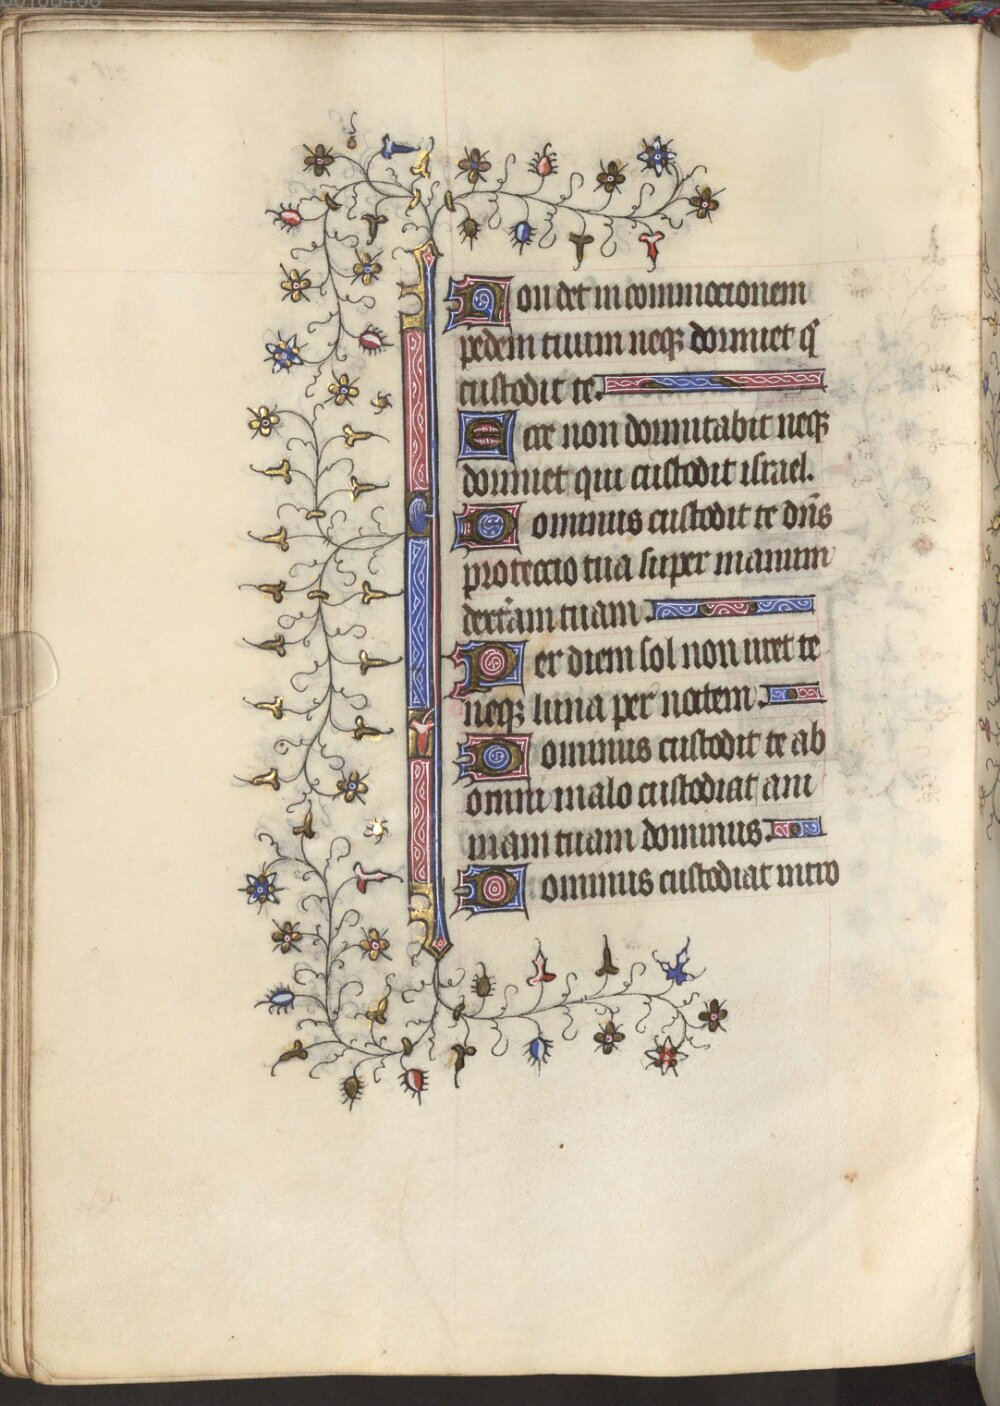 Non det in commocionem
pedem tuum neqꝫ dormiet qͥ
custodit te.
Ecce non dormitabit neqꝫ
dormiet qui custodit israel.
Dominus custodit te dn̄s
proteccio tua super manum
dext̄am tuam.
Per diem sol non uret te
neqꝫ luna per noctem.
Dominus custodit te ab
omni malo custodiat ani
mam tuam dominus.
Dominus custodiat intro